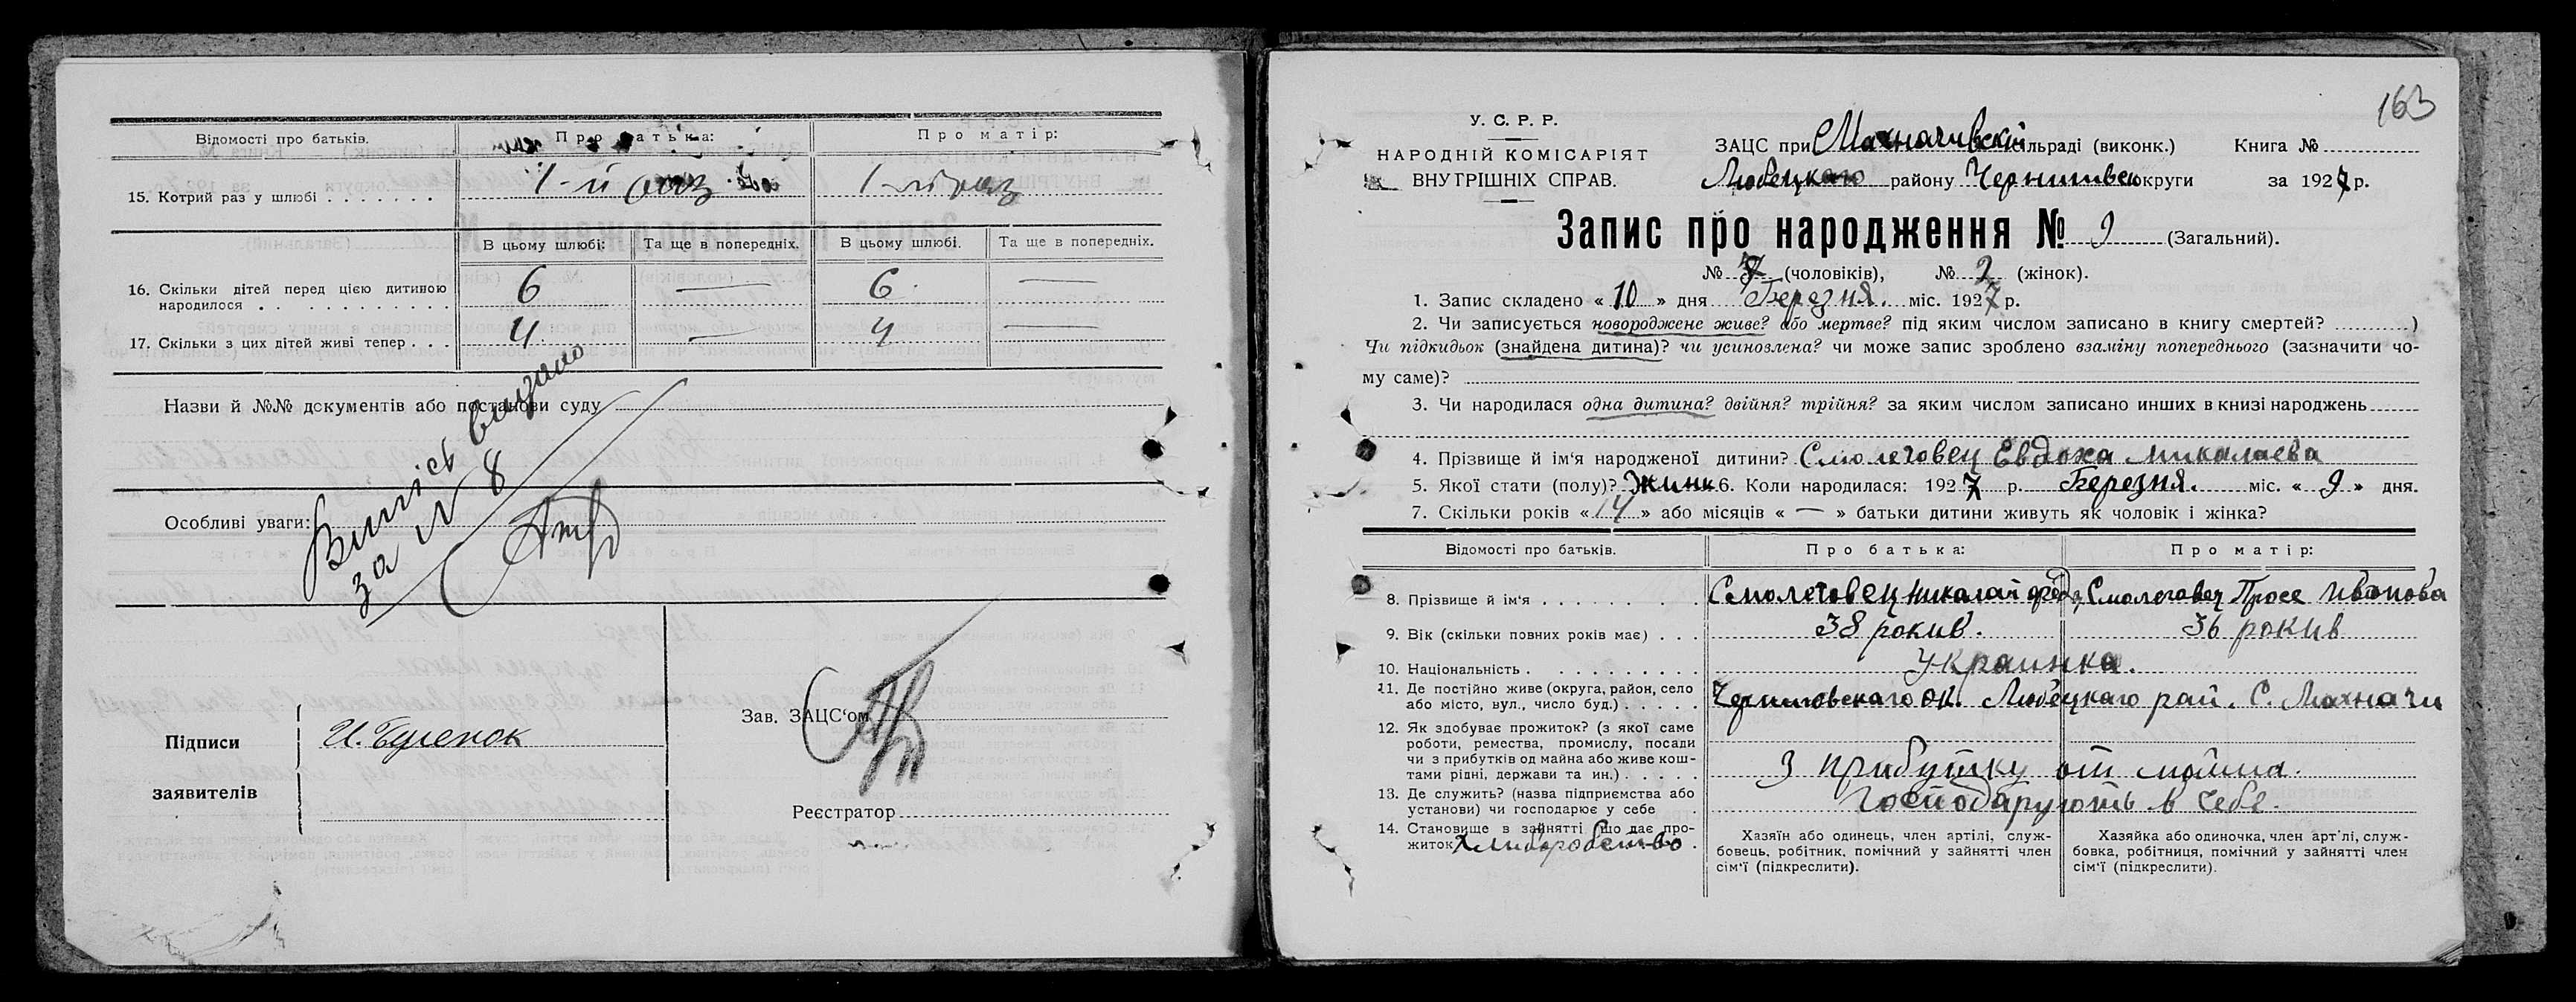 Відомості про батьків.
Про батька:
Про матір:
15. Котрий раз у шлюбі . . . . . . .
1-й раз
1-й раз
В цьому шлюбі:
Та ще в попередніх.
В цьому шлюбі.
Та ще в попередніх.
16. Скільки дітей перед цією дитиною
народилося
6
—
6
—
17. Скільки з цих дітей живі тепер . . .
4
—
4
—
Назви й №№ документів або постанови суду
Випись видано
за № 8
Особливі уваги:
Підписи
заявителів
Зав. ЗАЦС'ом
Реєстратор
163
У. С. Р. Р.
НАРОДНІЙ КОМІСАРІЯТ
ВНУТРІШНІХ СПРАВ.
ЗАЦС при Махначивский сільраді (виконк.) Книга №
Любецкаго району Чернигивсь округи за 1927 р.
Запис про народження № 9 (Загальний).
№ 7 (чоловіків), № 2 (жінок).
1. Запис складено « 10 » дня Березня. міс. 1927 р.
2. Чи записується новороджене живе? або мертве? під яким числом записано в книгу смертей? )
Чи підкидьок (знайдена дитина)? чи усиновлена? чи може запис зроблено взаміну попереднього (зазначити чо-
му саме)?
3. Чи народилася одна дитина? двійня? трійня? за яким числом записано инших в книзі народжень
4. Прізвище й ім'я народженої дитини? Смолеговец Евдоха Микалаева
5. Якої стати (полу)? Жинк 6. Коли народилася: 1927 р. Березня. міс. « 9 » дня.
7. Скільки років « 14 » або місяців « — » батьки дитини живуть як чоловік і жінка?
Відомості про батьків.
Про батька:
Про матір:
8. Прізвище й ім'я
Смолеговец Николай
Смолеговец Просе Ивонова
9. Вік (скільки повних років має) . . .
38 рокив.
36 рокив
10. Національність
Украинка.
11. Де постійно живе (округа, район, село
або місто, вул., число буд.)
Черниговскаго ок. Любецкаго рай. С. Махначи
12. Як здобуває прожиток? (з якої саме
роботи, ремества, промислу, посади
чи з прибутків од майна або живе кош-
тами рідні, держави та ин.)
З прибутку от майна.
13. Де служить? (назва підприємства або
установи) чи господарює у себе
Господарують в себе.
14. Становище в зайнятті що дає про-
житок Хлиборобство
Хазяїн або одинець, член артілі, служ-
бовець, робітник, помічний у зайнятті член
сім'ї (підкреслити).
Хазяйка або одиночка, член арт'лі, служ-
бовка, робітниця, помічний у зайнятті член
сім'ї (підкреслити).